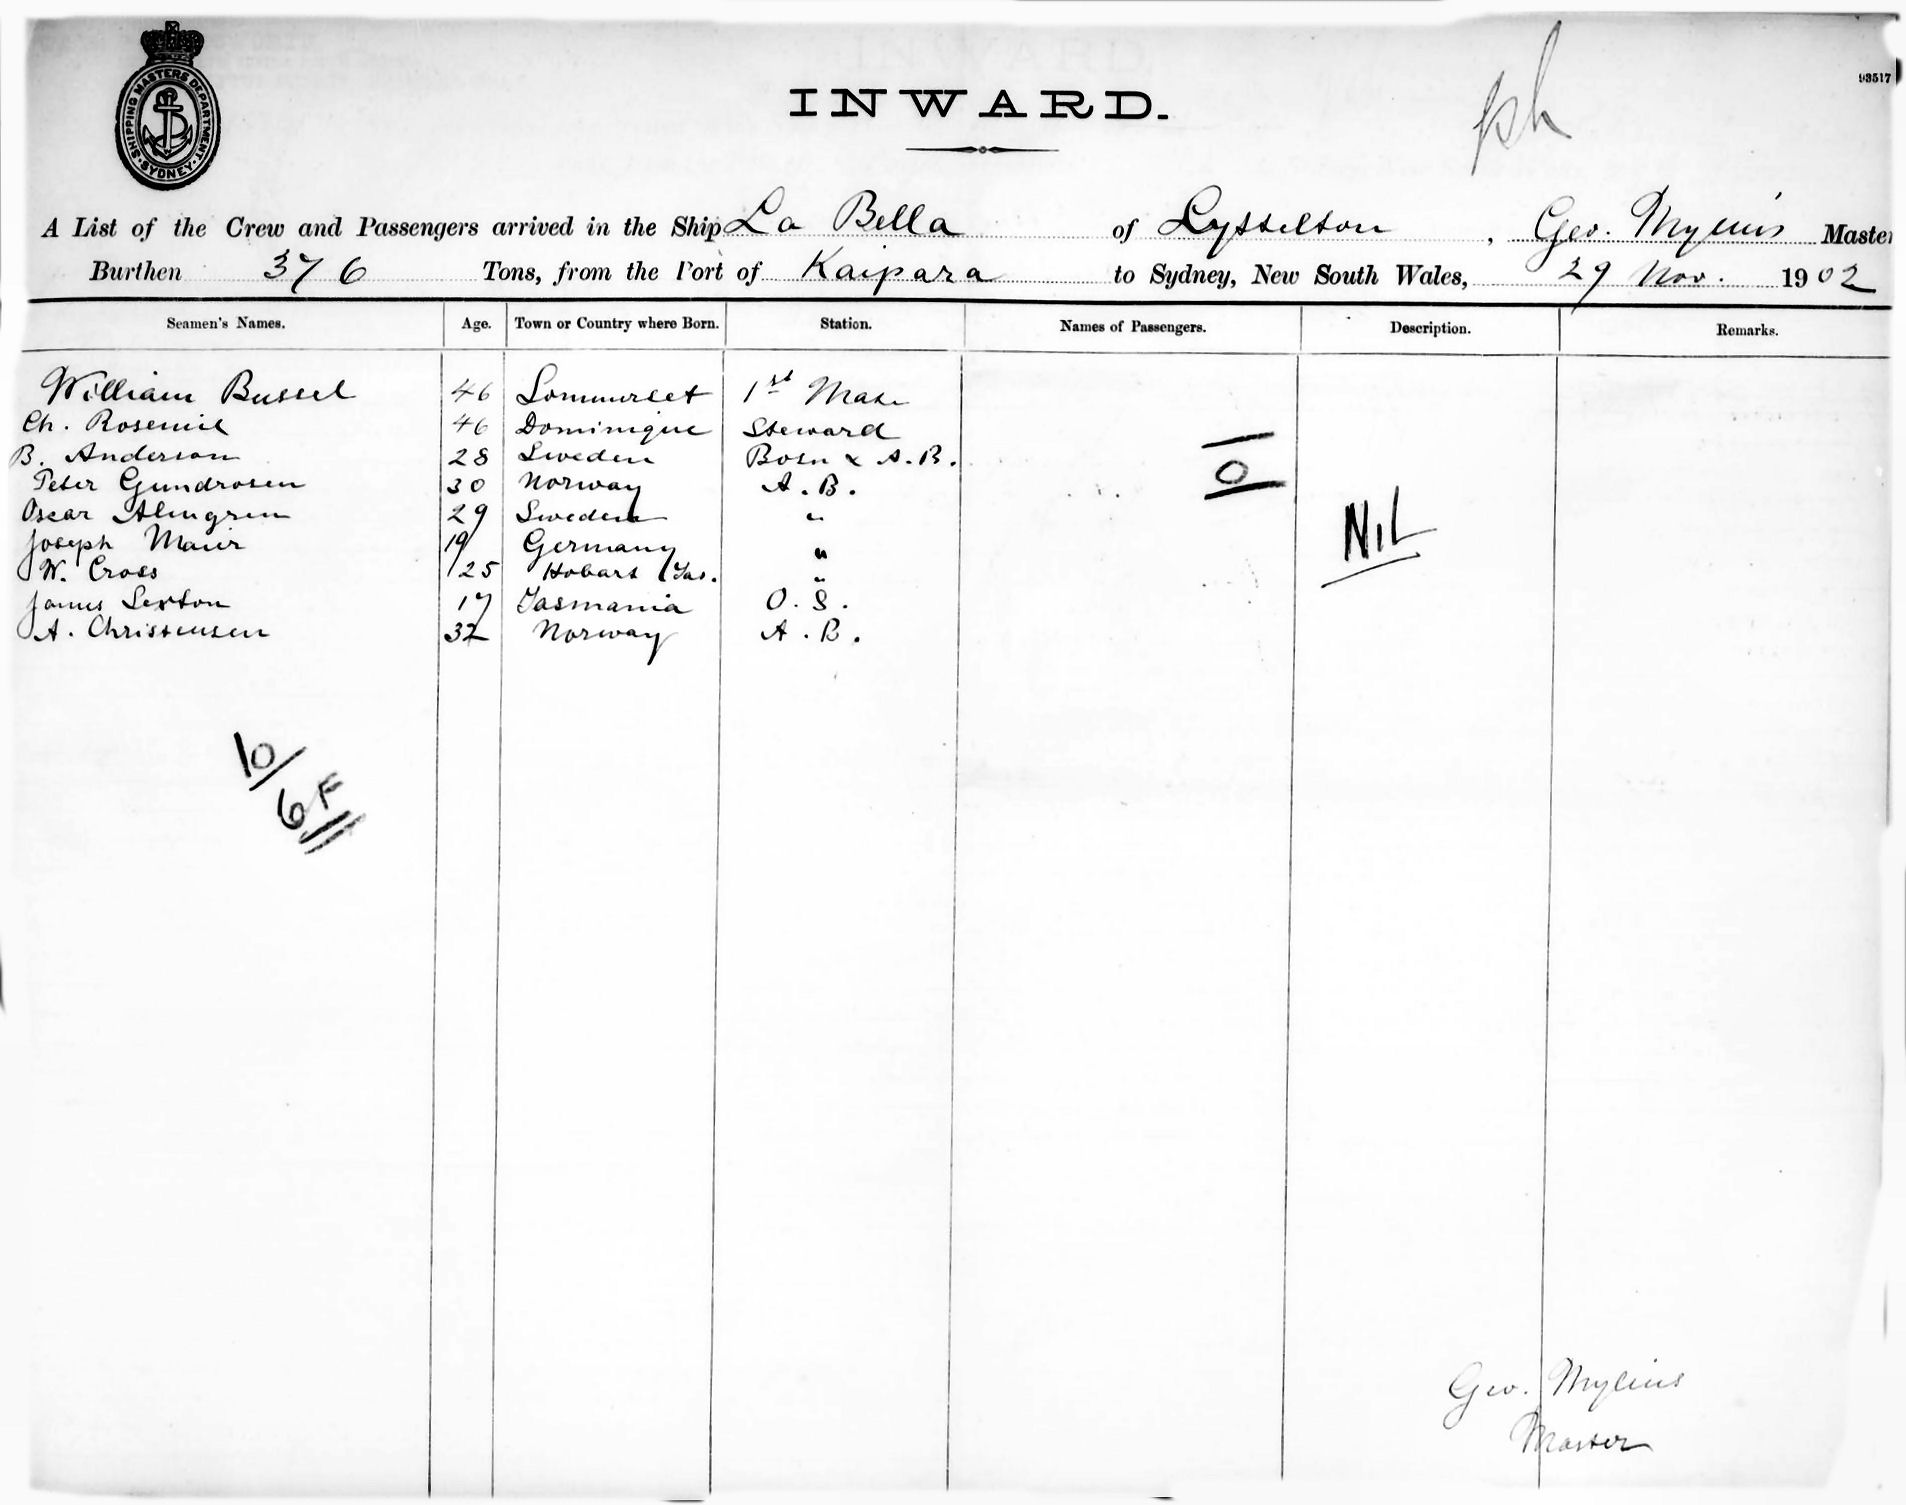 SHIPPING MASTERS DEPARTMENT · SYDNEY ·
93517
INWARD.
ph
A List of the Crew and Passengers arrived in the Ship La Bella of Lyttelton, Geo. Mylius Master
Burthen 376 Tons, from the Port of Kaipara to Sydney, New South Wales, 29 Nov. 1902
Seamen's Names. Age. Town or Country where Born. Station. Names of Passengers. Description. Remarks.
William Bussel 46 Sommerset 1st Mate
Ch. 46 Dominique Steward
B. Anderson 28 Sweden Bosn & A.B.
Peter Gundrosen 30 Norway A.B.
Oscar Almgren 29 Sweden "
Joseph Maier 19 Germany "
W. Cross 25 Hobart (Tas. "
James Sexton 17 Tasmania O.S.
A. Christensen 32 Norway A.B.
0
NIL
10/
6 F
Geo. Mylius
Master